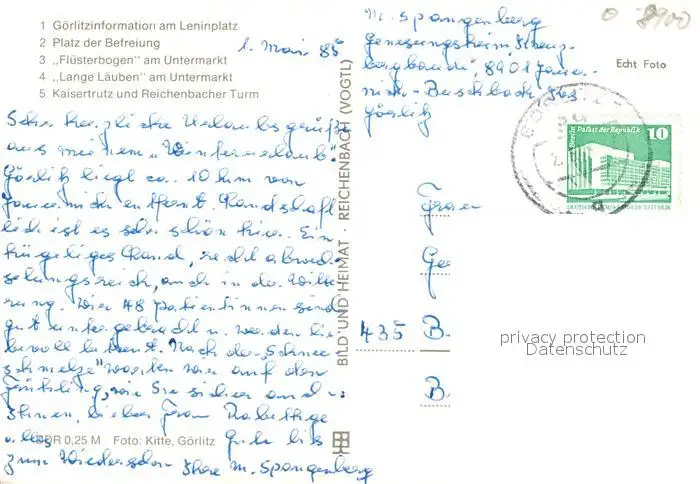 1 Görlitzinformation am Leninplatz
2 Platz der Befreiung
3 „Flüsterbogen" am Untermarkt
4 „Lange Läuben" am Untermarkt
5 Kaisertrutz und Reichenbacher Turm
1. Mai 85
Sehr herzliche Urlaubsgrüße
aus meinem „Winterurlaub".
Görlitz liegt ca. 10 km von
entfernt. Landschaft
lich ist es sehr schön hier. Ein
hügeliges Land, recht abwech
selungsreich, auch in der Witte
rung. Wir 48 Patientinnen sind
gut untergebracht u. werden lie
bevoll betreut. Nach der „Schnee
schmelze" warten wir auf den
Frühling, wie Sie sicher auch.
Ihnen, liebe Frau
alles Gute bis
zum Wiedersehn Ihre M. Spangenberg
DDR 0,25 M Foto: Kitte, Görlitz
BILD UND HEIMAT · REICHENBACH (VOGTL)
M. Spangenberg
Genesungsheim Kreuz-
bergbaude, 8901 Jauer-
nick-Buschbach Krs
Görlitz
8900
Echt Foto
Berlin, Palast der Republik
10
Frau
435 B.
B.
privacy protection
Datenschutz